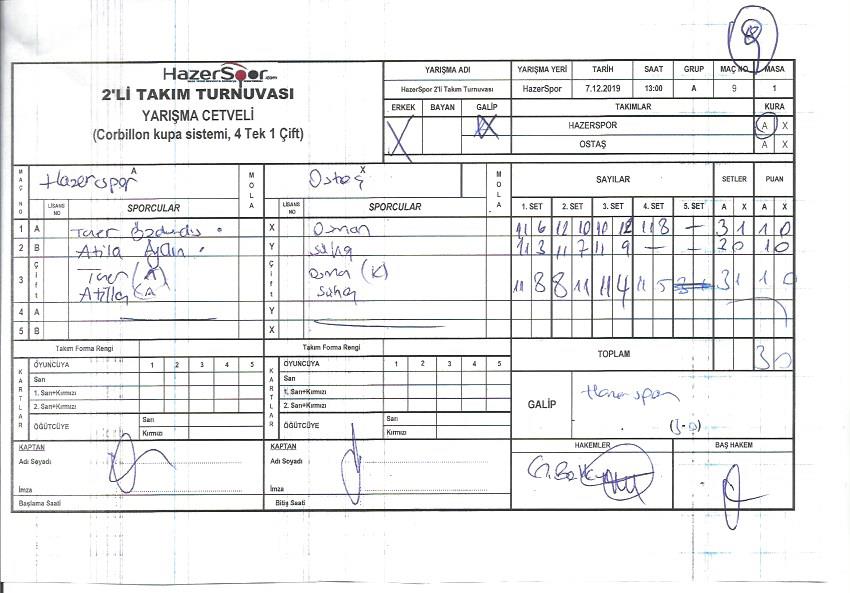 HazerSpor.com
2'Lİ TAKIM TURNUVASI
YARIŞMA CETVELİ
(Corbillon kupa sistemi, 4 Tek 1 Çift)
YARIŞMA ADI YARIŞMA YERİ TARİH SAAT GRUP MAÇ NO MASA
HazerSpor 2'li Takım Turnuvası HazerSpor 7.12.2019 13:00 A 9 1
ERKEK BAYAN GALİP TAKIMLAR KURA
X X HAZERSPOR A X
OSTAŞ A X
MAÇ NO A Hazerspor MOLA X Ostaş MOLA SAYILAR SETLER PUAN
LİSANS NO SPORCULAR LİSANS NO SPORCULAR 1. SET 2. SET 3. SET 4. SET 5. SET A X A X
1 A X Osman 11 6 12 10 10 12 11 8 - 3 1 1 0
2 B Atila Aydın Y 11 3 11 7 11 9 - - 2 0 1 0
3 Çift Taner (A) Çift Osman (K) 11 8 8 11 11 4 11 5 3 1 1 0
Atilla (A)
4 A Y
5 B X
Takım Forma Rengi Takım Forma Rengi TOPLAM 3 0
KARTLAR OYUNCUYA 1 2 3 4 5 KARTLAR OYUNCUYA 1 2 3 4 5
Sarı Sarı
1. Sarı+Kırmızı 1. Sarı+Kırmızı GALİP Hazerspor
2. Sarı+Kırmızı 2. Sarı+Kırmızı
ÖĞÜTCÜYE Sarı ÖĞÜTCÜYE Sarı (3-0)
Kırmızı Kırmızı
KAPTAN KAPTAN HAKEMLER BAŞ HAKEM
Adı Soyadı Adı Soyadı
İmza İmza
Başlama Saati Bitiş Saati